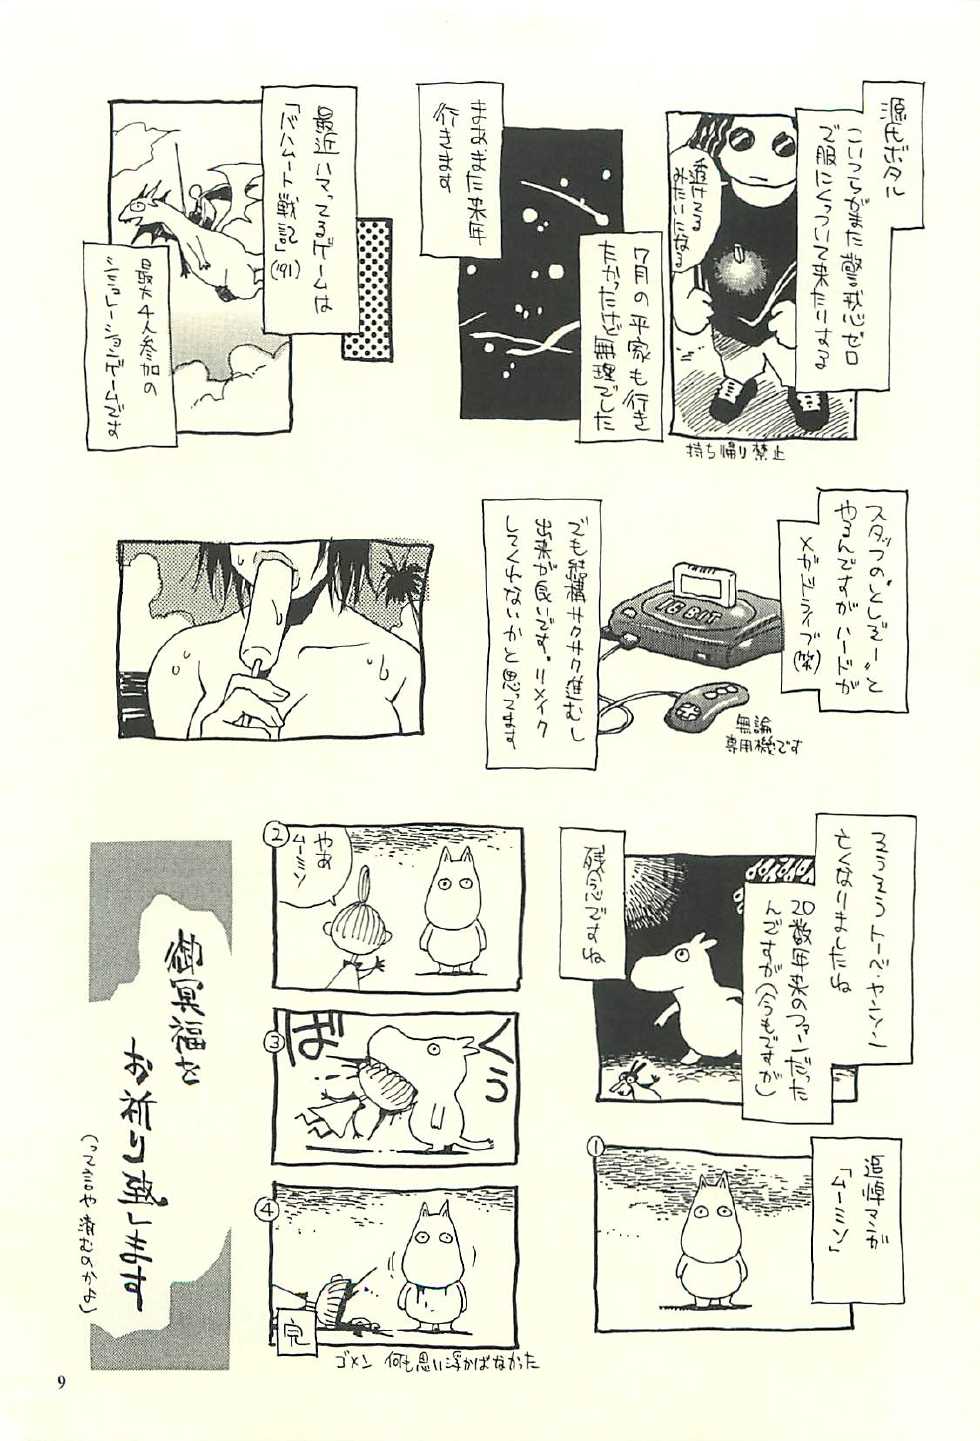 源氏ボタル
こいつらがまた警戒心ゼロ
で服にくっついて来たりする
透けてる
みたいになる
持ち帰り禁止
7月の平家も行き
たかったけど無理でした
まあまた来年
行きます
最近ハマってるゲームは
「バハムート戦記」('91)
最大4人参加の
シミュレーションゲームです
スタッフの"としぞー"と
やるんですがハードが
メガドライブ(笑)
16 BIT
無論
専用機です
でも結構サクサク進むし
出来が良いです。リメイク
してくれないかと思ってます
そうそうトーベ・ヤンソン
亡くなりましたね
20数年来のファンだった
んですが(今もですが)
残念ですね
追悼マンガ
「ムーミン」
①
②
やあ
ムーミン
③
ばくっ
④
完
ゴメン 何も思い浮かばなかった
御冥福を
お祈り致します
(って言や済むのかよ)
9